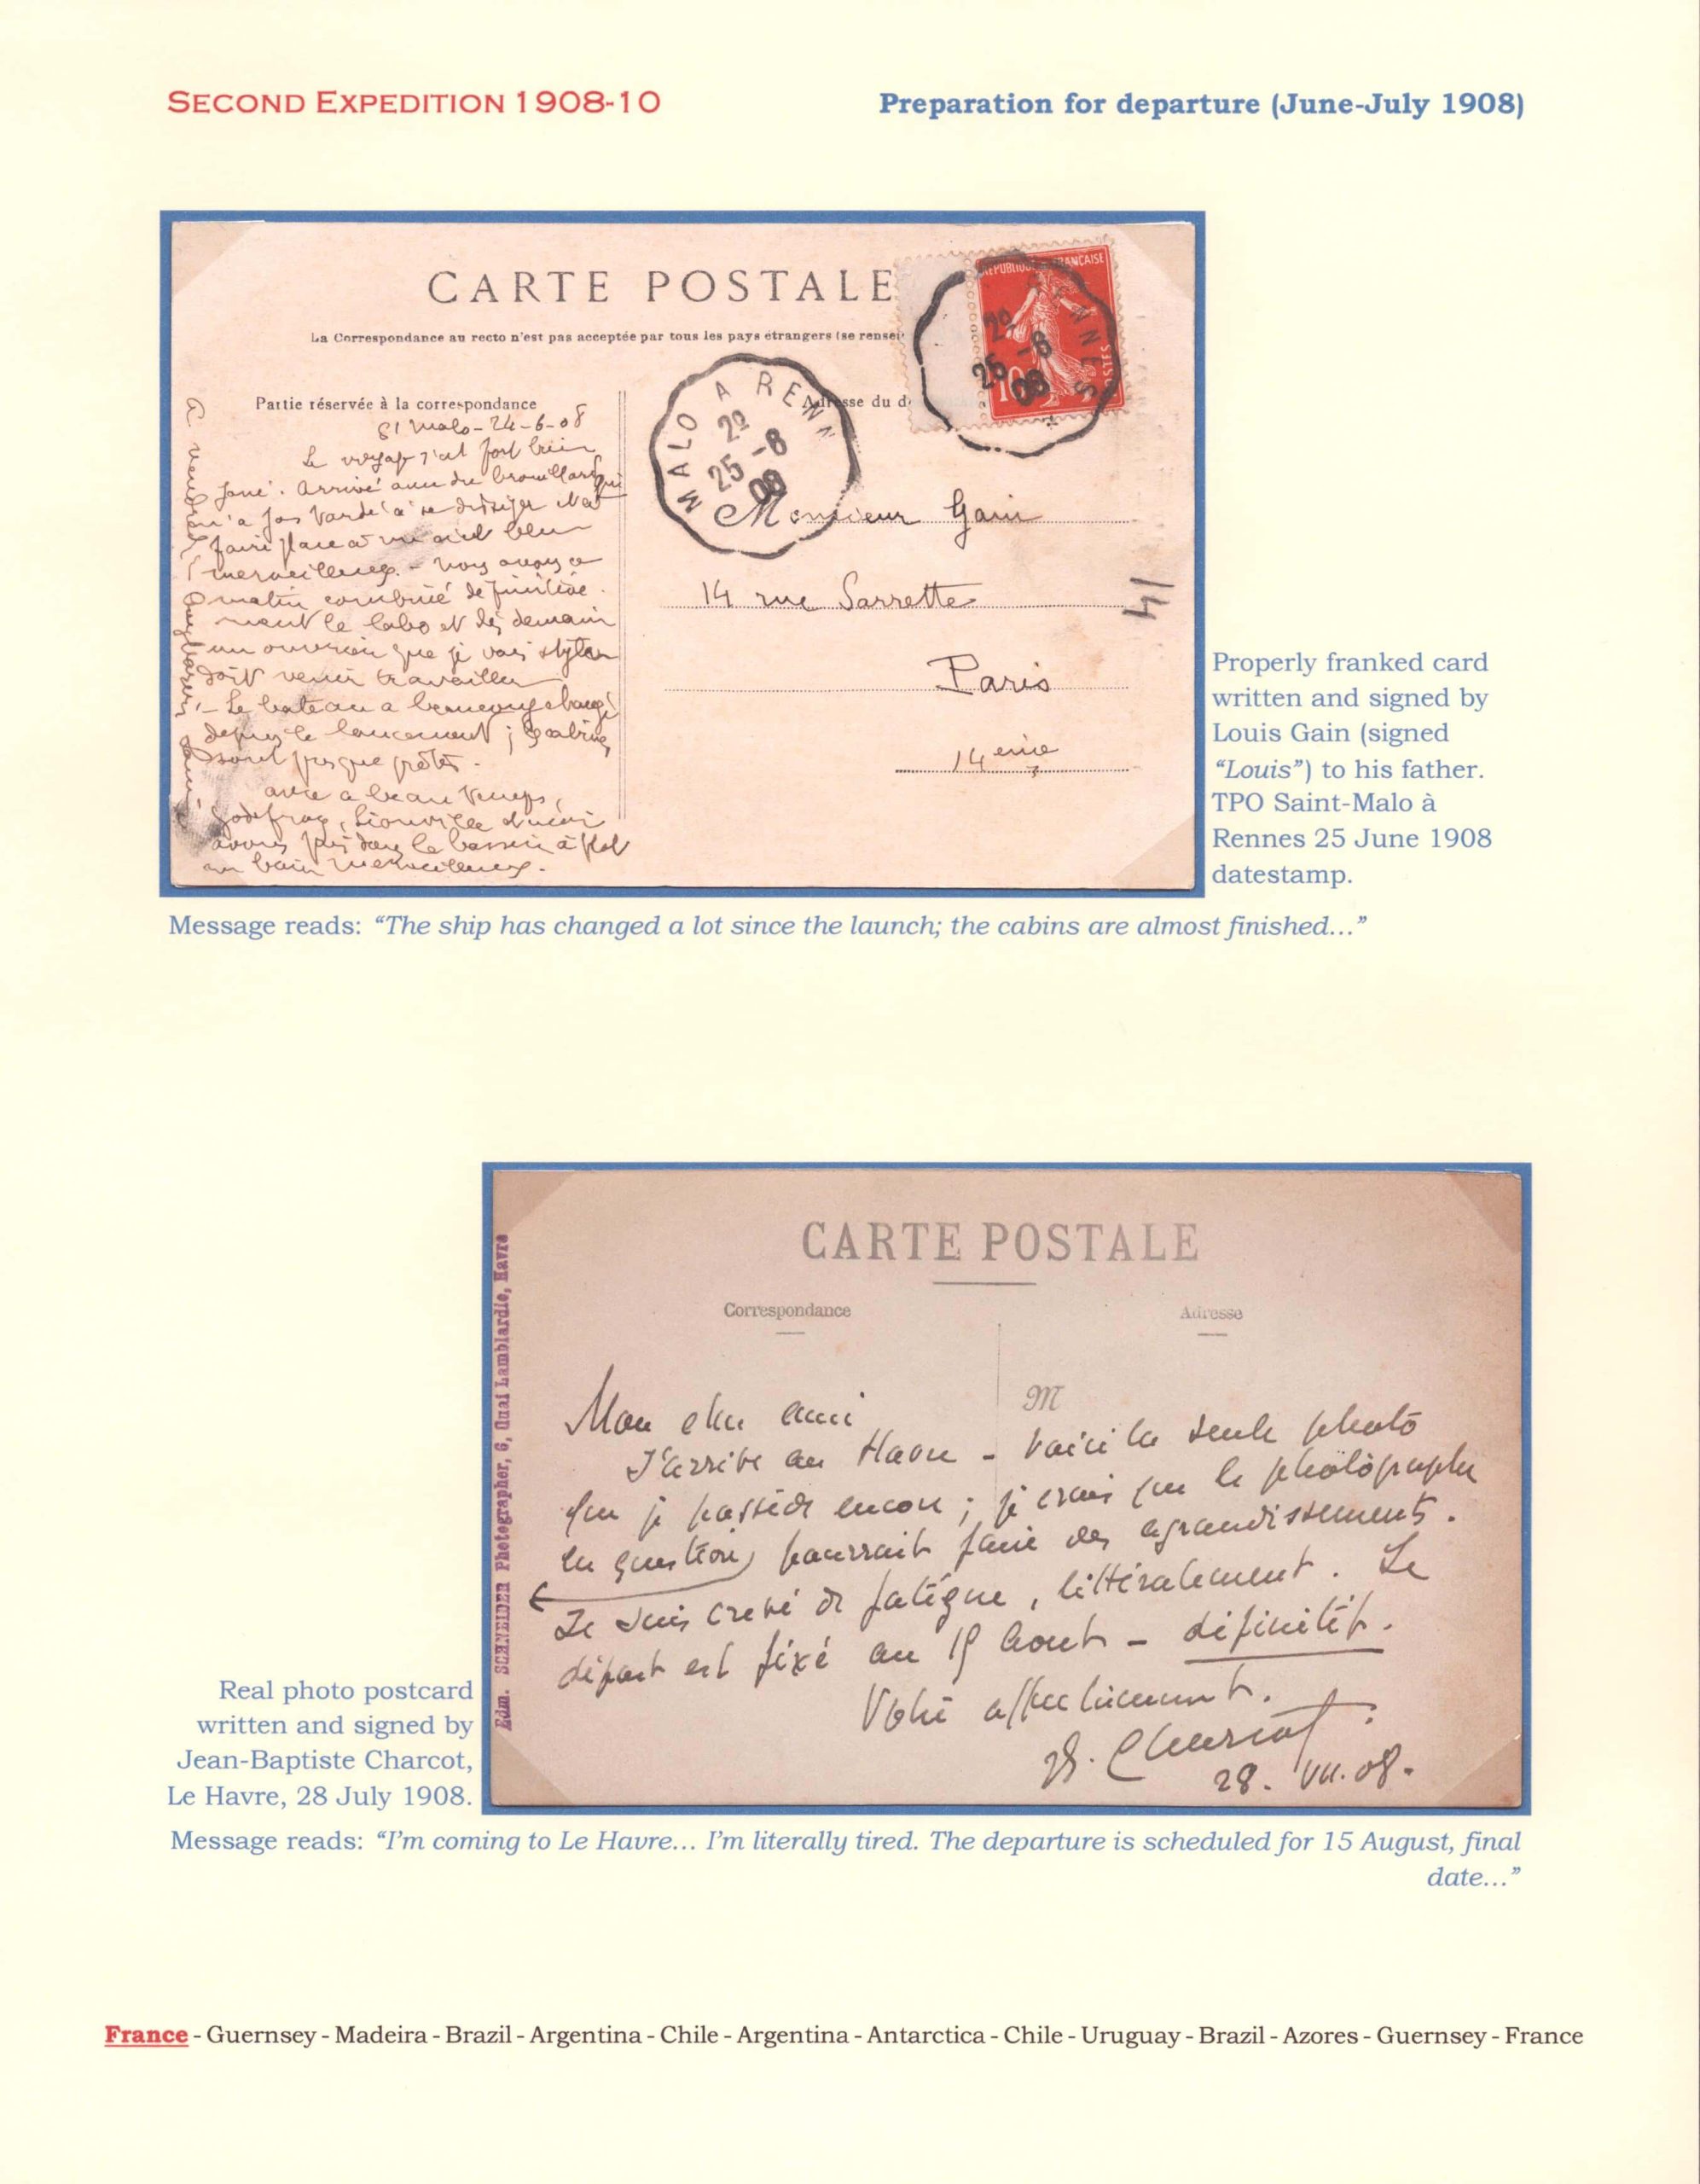 SECOND EXPEDITION 1908-10
Preparation for departure (June-July 1908)
CARTE POSTALE
La Correspondance au recto n'est pas acceptée par tous les pays étrangers (se rensei
Partie réservée à la correspondance
Adresse du d
RÉPUBLIQUE FRANÇAISE
POSTES
10
RENNES
2º
25 -6
08
MALO A RENN
2º
25 -6
08
St Malo - 24-6-08
Le voyage s'est fort bien
passé. Arrivé avec du brouillard qui
n'a pas tardé à se dissiper et a
faire place à un ciel bleu
merveilleux. - Nous avons ce
matin combiné définitive
ment le labo et dès demain
un ouvrier que je vais styler
doit venir travailler
- Le bateau a beaucoup changé
depuis le lancement ; les cabines
sont presque prêtes.
avec ce beau temps,
Godfroy, Liouville et moi
avons pris dans le bassin à flot
un bain merveilleux.
a vendredi
Louis
Monsieur Gain
14 rue Sarrette
Paris
14eme
14
Properly franked card
written and signed by
Louis Gain (signed
“Louis”) to his father.
TPO Saint-Malo à
Rennes 25 June 1908
datestamp.
Message reads: “The ship has changed a lot since the launch; the cabins are almost finished...”
CARTE POSTALE
Correspondance
Adresse
M
Edm. SCHNEIDER Photographer, 6, Quai Lamblardie, Havre
Mon cher ami
J'arrive au Havre - Voici la seule photo
que je possède encore ; je crois que le photographe
en question pourrait faire des agrandissements.
Je suis crevé de fatigue, littéralement. Le
départ est fixé au 15 Aout - définitif.
Votre affectueusement.
JB. Charcot
28. VII. 08.
Real photo postcard
written and signed by
Jean-Baptiste Charcot,
Le Havre, 28 July 1908.
Message reads: “I’m coming to Le Havre... I’m literally tired. The departure is scheduled for 15 August, final
date...”
France - Guernsey - Madeira - Brazil - Argentina - Chile - Argentina - Antarctica - Chile - Uruguay - Brazil - Azores - Guernsey - France